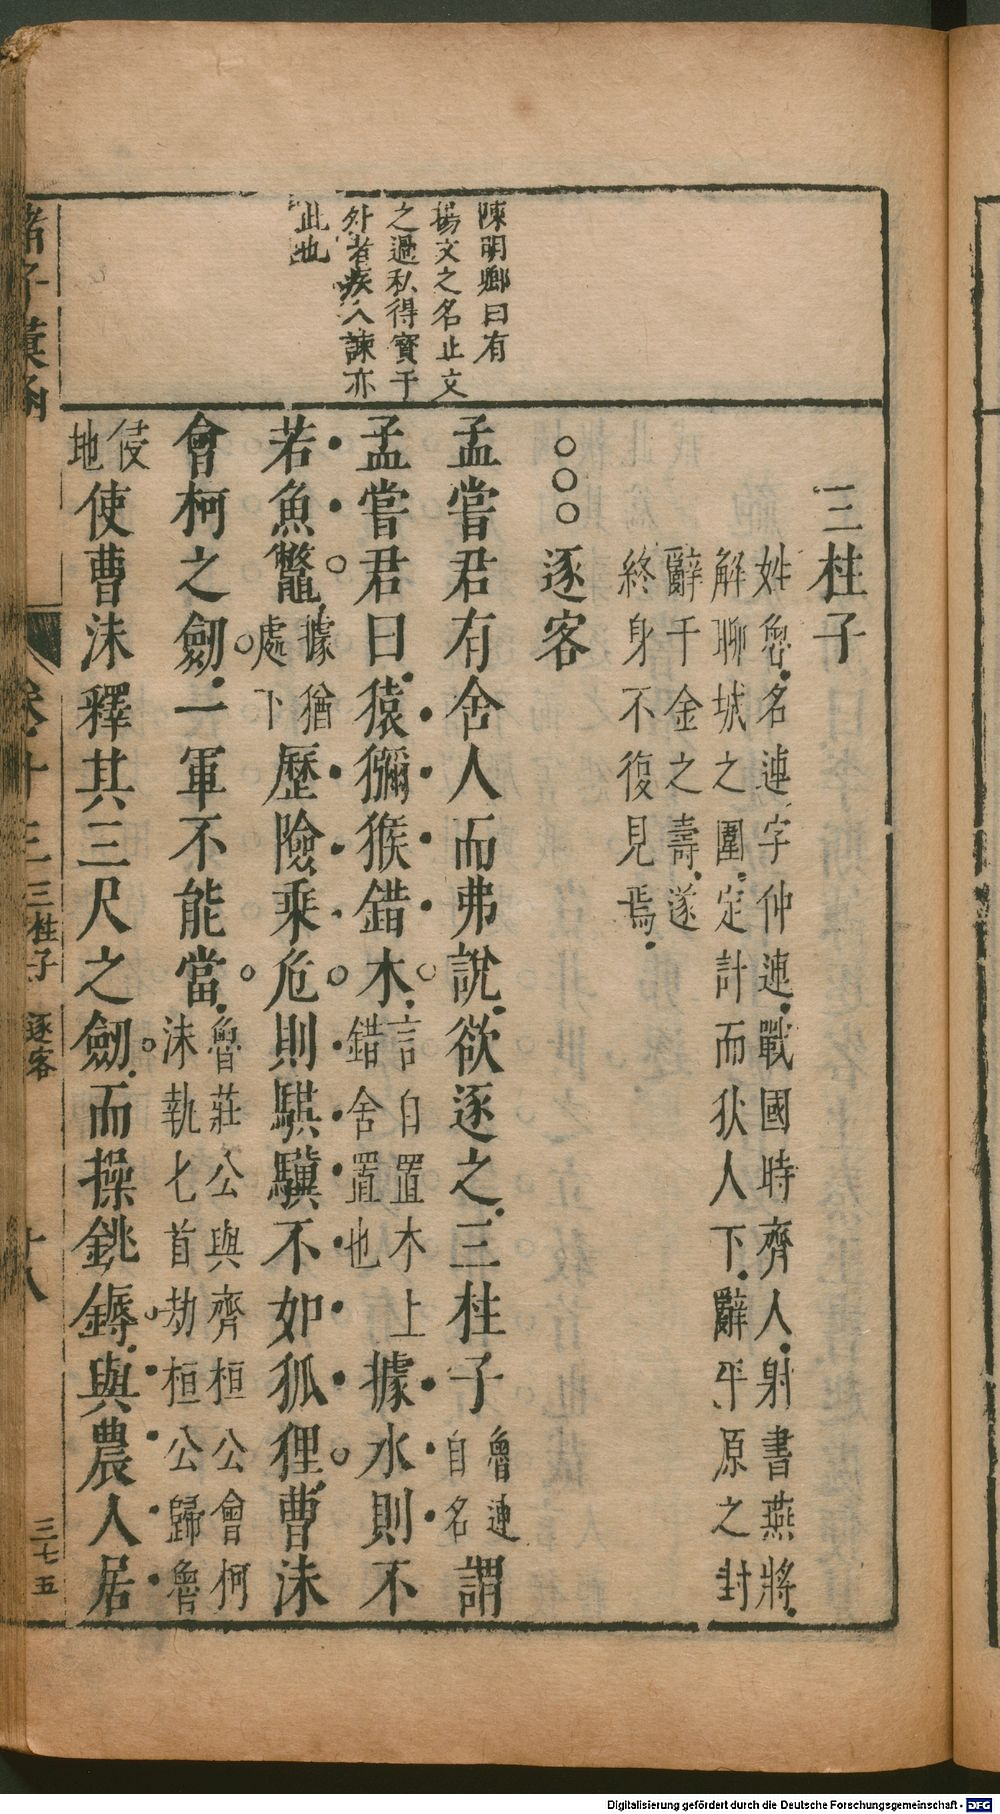 陳明卿曰有
揚文之名止文
之過私得寶于
外者疾入諫亦
此也
三柱子
姓魯名連字仲連戰國時齊人射書燕將
解聊城之圍定計而狄人下辭平原之封
辭千金之壽遂
終身不復見焉
○○○逐客
孟嘗君有舍人而弗說欲逐之三柱子魯連自名謂
孟嘗君曰猿獼猴錯木言自置木上錯舍置也據水則不
若魚鼈據猶處下歷險乘危則騏驥不如狐狸曹沬
會柯之劒一軍不能當魯莊公與齊桓公會柯沬執匕首劫桓公歸魯
侵地使曹沬釋其三尺之劒而操銚鎒與農人居
諸子彙函
卷十三
三柱子
逐客
十八
三七五
Digitalisierung gefördert durch die Deutsche Forschungsgemeinschaft - DFG